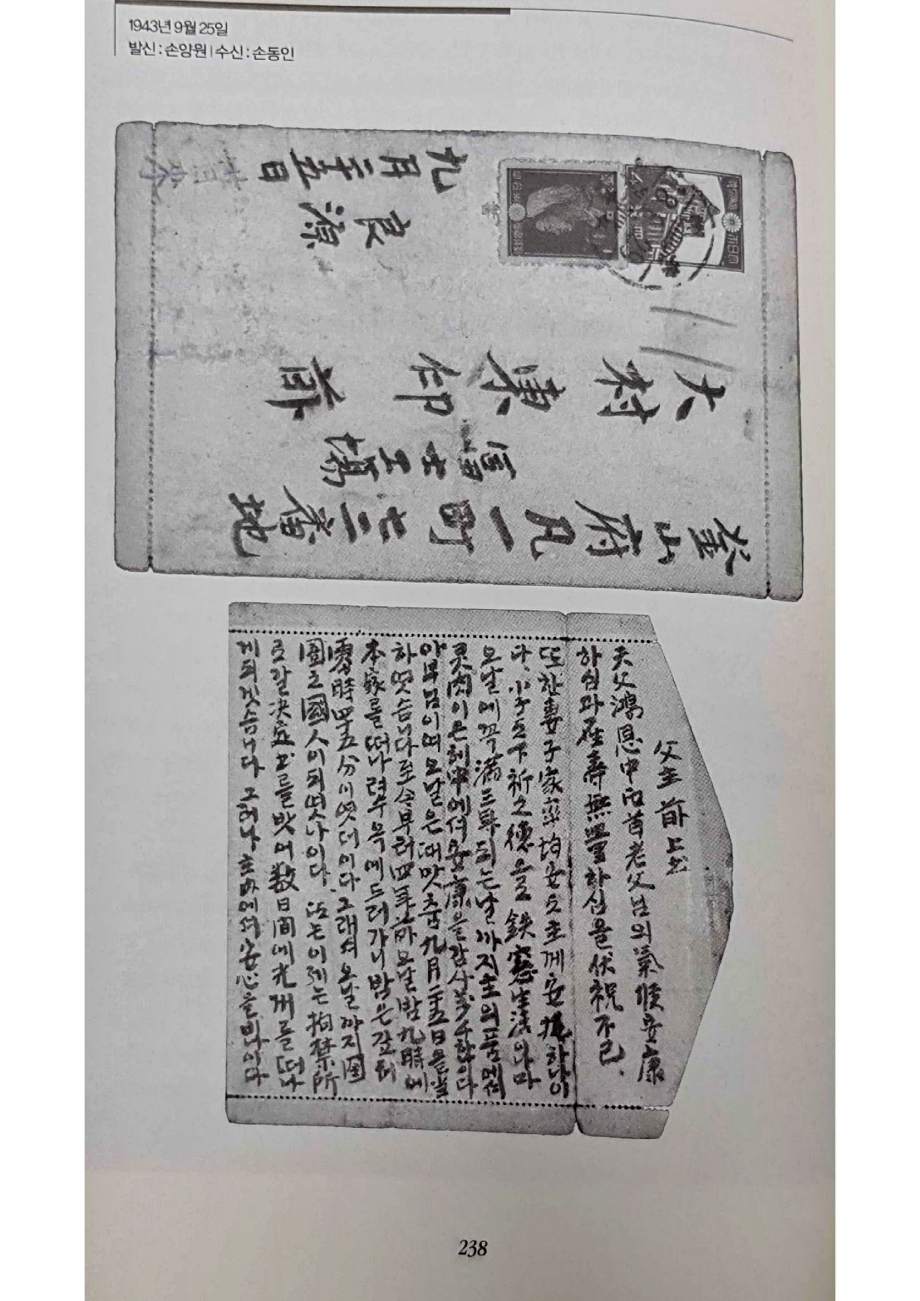 1943년 9월 25일
발신 : 손양원 | 수신 : 손동인
釜山府凡一町七二番地
富士工場
大村東仁前
良源
九月二十五日
父主前上書
天父鴻恩中 老父님의氣候安康
하심과在壽無疆하심을伏祝不已
또한妻子家率均安도主께安托하나이
다. 小子도下祈之德으로鉄窓生活이나마
오날에꼭滿三年되는날까지主의품에서
灵肉이은혜中에서安康을감사할
아부님이여오날은때맞춤九月二十五日을當
하엿슴니다至今부터四年前오날밤九時에
本家를떠나려수옥에드러가니밤은깊허
零時四五分이엿더이다. 그래서오날까지囹
圄之國人이되엿나이다. 또는이제는拘禁所
로갈决定书를밧어数日间에光州를떠나
게되겟슴니다 그러나主안에서安心을비나이다
238